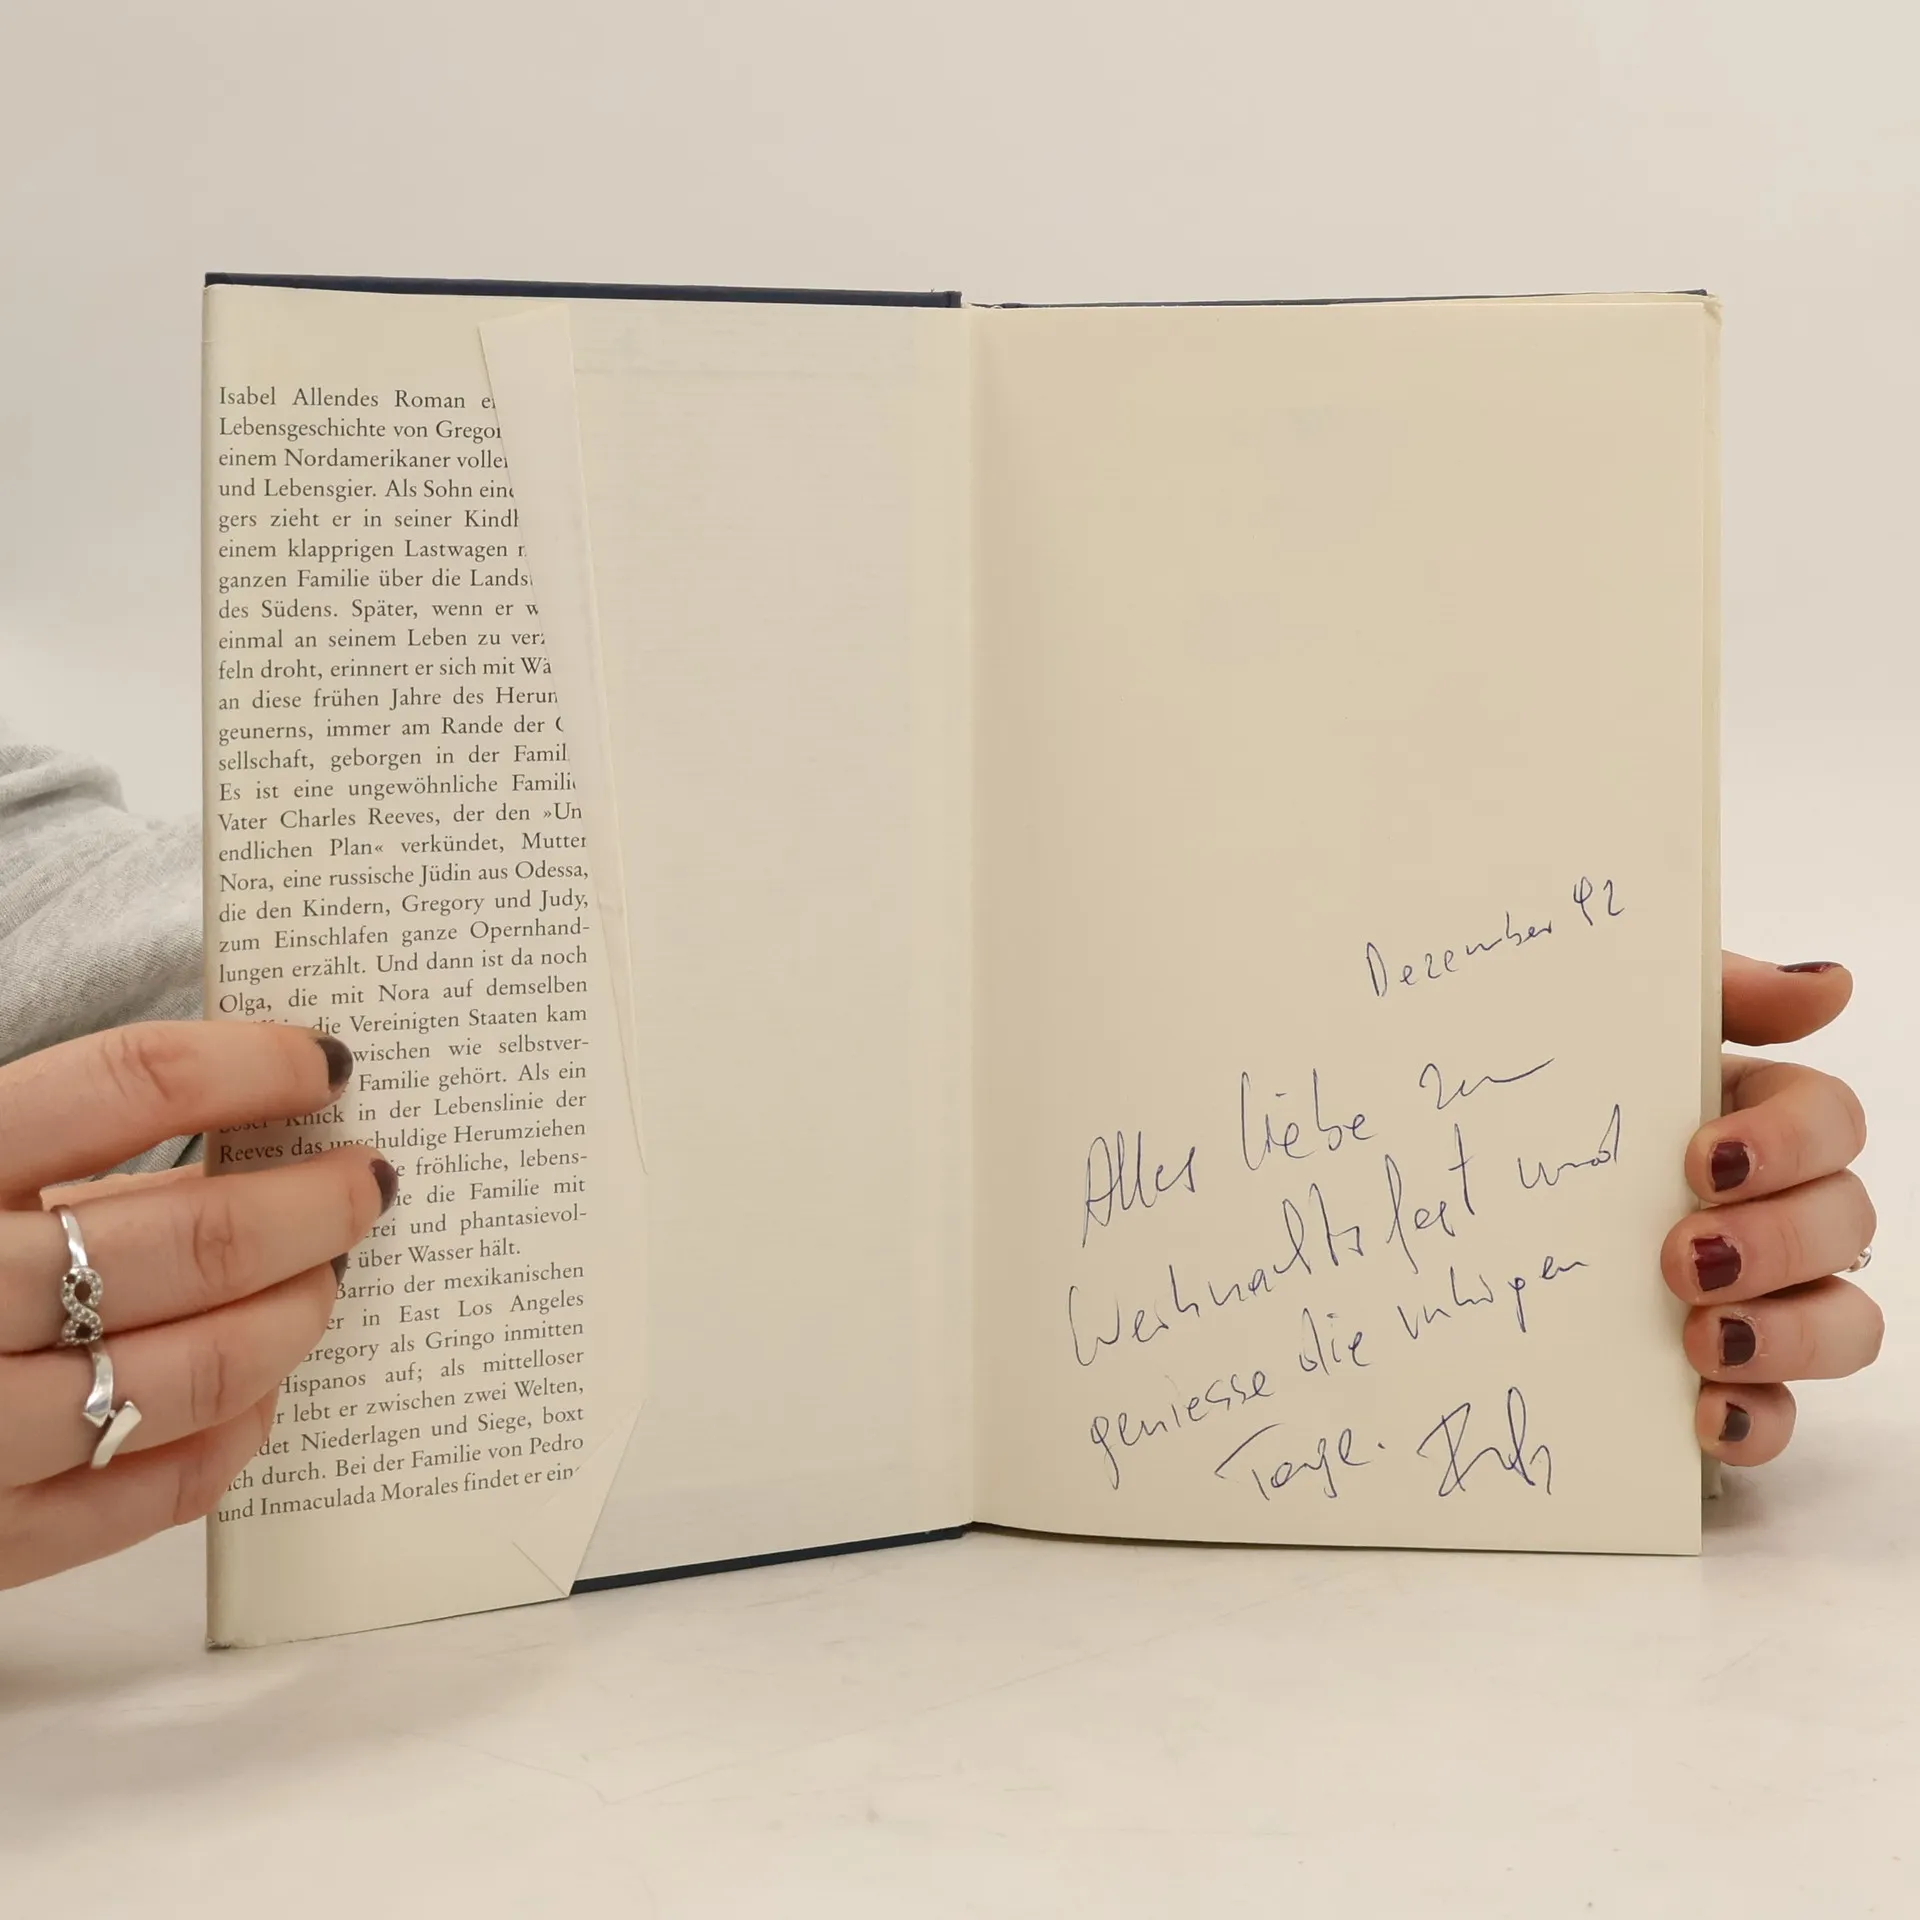 Isabel Allendes Roman
Lebensgeschichte von Gregor
einem Nordamerikaner
und Lebensgier. Als Sohn
gers zieht er in seiner
einem klapprigen Lastwagen
ganzen Familie über die
des Südens. Später, wenn er
einmal an seinem Leben zu
feln droht, erinnert er sich mit
an diese frühen Jahre des
geunerns, immer am Rande der
sellschaft, geborgen in der
Es ist eine ungewöhnliche
Vater Charles Reeves, der den »Un
endlichen Plan« verkündet, Mutter
Nora, eine russische Jüdin aus Odessa,
die den Kindern, Gregory und Judy,
zum Einschlafen ganze Opernhand-
lungen erzählt. Und dann ist da noch
Olga, die mit Nora auf demselben
die Vereinigten Staaten kam
wischen wie selbstver-
Familie gehört. Als ein
Knick in der Lebenslinie der
Reeves das unschuldige Herumziehen
fröhliche, lebens-
die Familie mit
rei und phantasievol-
über Wasser hält.
Barrio der mexikanischen
er in East Los Angeles
Gregory als Gringo inmitten
Hispanos auf; als mittelloser
lebt er zwischen zwei Welten,
det Niederlagen und Siege, boxt
ch durch. Bei der Familie von Pedro
und Inmaculada Morales findet er
Dezember 92
Alles liebe zum
Weihnachtsfest und
geniesse die ruhigen
Tage.